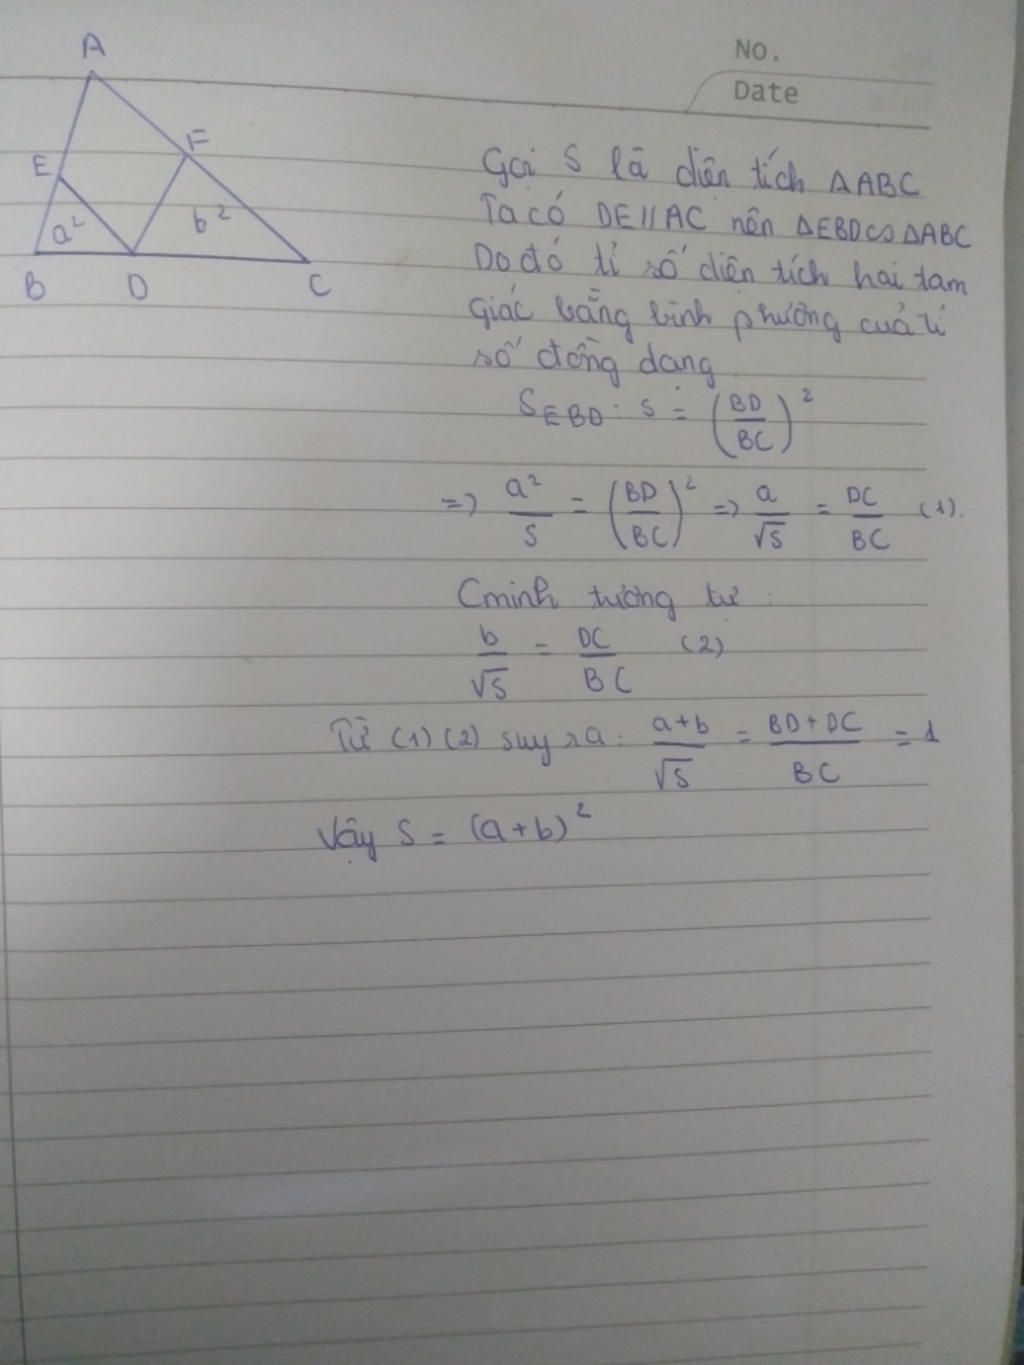 No.
Date
A
E
F
a²
b²
B D C
Gọi S là diện tích ΔABC
Ta có DE // AC nên ΔEBD ∽ ΔABC
Do đó tỉ số diện tích hai tam
giác bằng bình phương của tỉ
số đồng dạng
S_EBD : S = (BD/BC)²
=> a²/S = (BD/BC)² => a/√S = DC/BC (1).
Cminh tương tự :
b/√S = DC/BC (2)
Từ (1) (2) suy ra : (a+b)/√S = (BD+DC)/BC = 1
Vậy S = (a+b)²